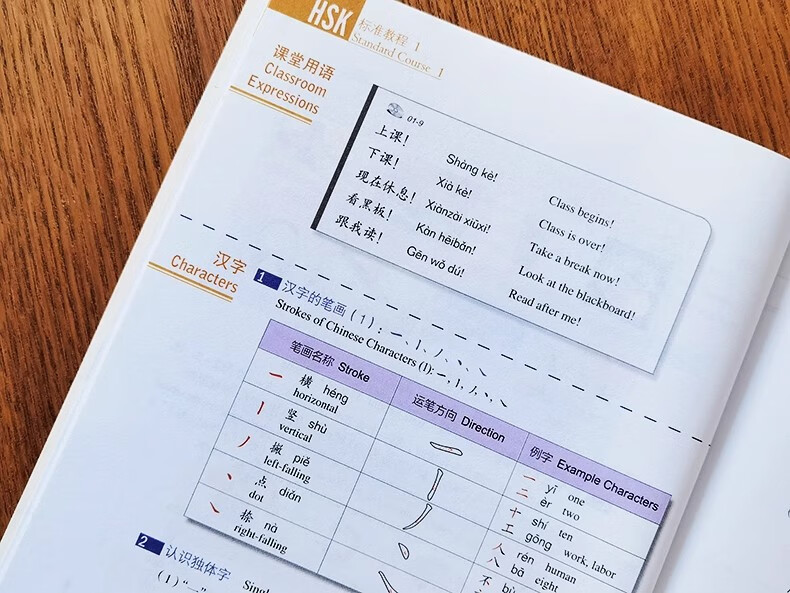 HSK 标准教程 1
Standard Course 1
课堂用语
Classroom
Expressions
01-9
上课! Shàng kè! Class begins!
下课! Xià kè! Class is over!
现在休息! Xiànzài xiūxi! Take a break now!
看黑板! Kàn hēibǎn! Look at the blackboard!
跟我读! Gēn wǒ dú! Read after me!
汉字
Characters
1 汉字的笔画(1):一、丨、丿、丶、㇏
Strokes of Chinese Characters (1): 一, 丨, 丿, 丶, ㇏
笔画名称 Stroke 运笔方向 Direction 例字 Example Characters
一 横 héng
horizontal
一 yī one
二 èr two
丨 竖 shù
vertical
十 shí ten
工 gōng work, labor
丿 撇 piě
left-falling
人 rén human
八 bā eight
丶 点 diǎn
dot
不 bù
㇏ 捺 nà
right-falling
2 认识独体字
(1) “一”